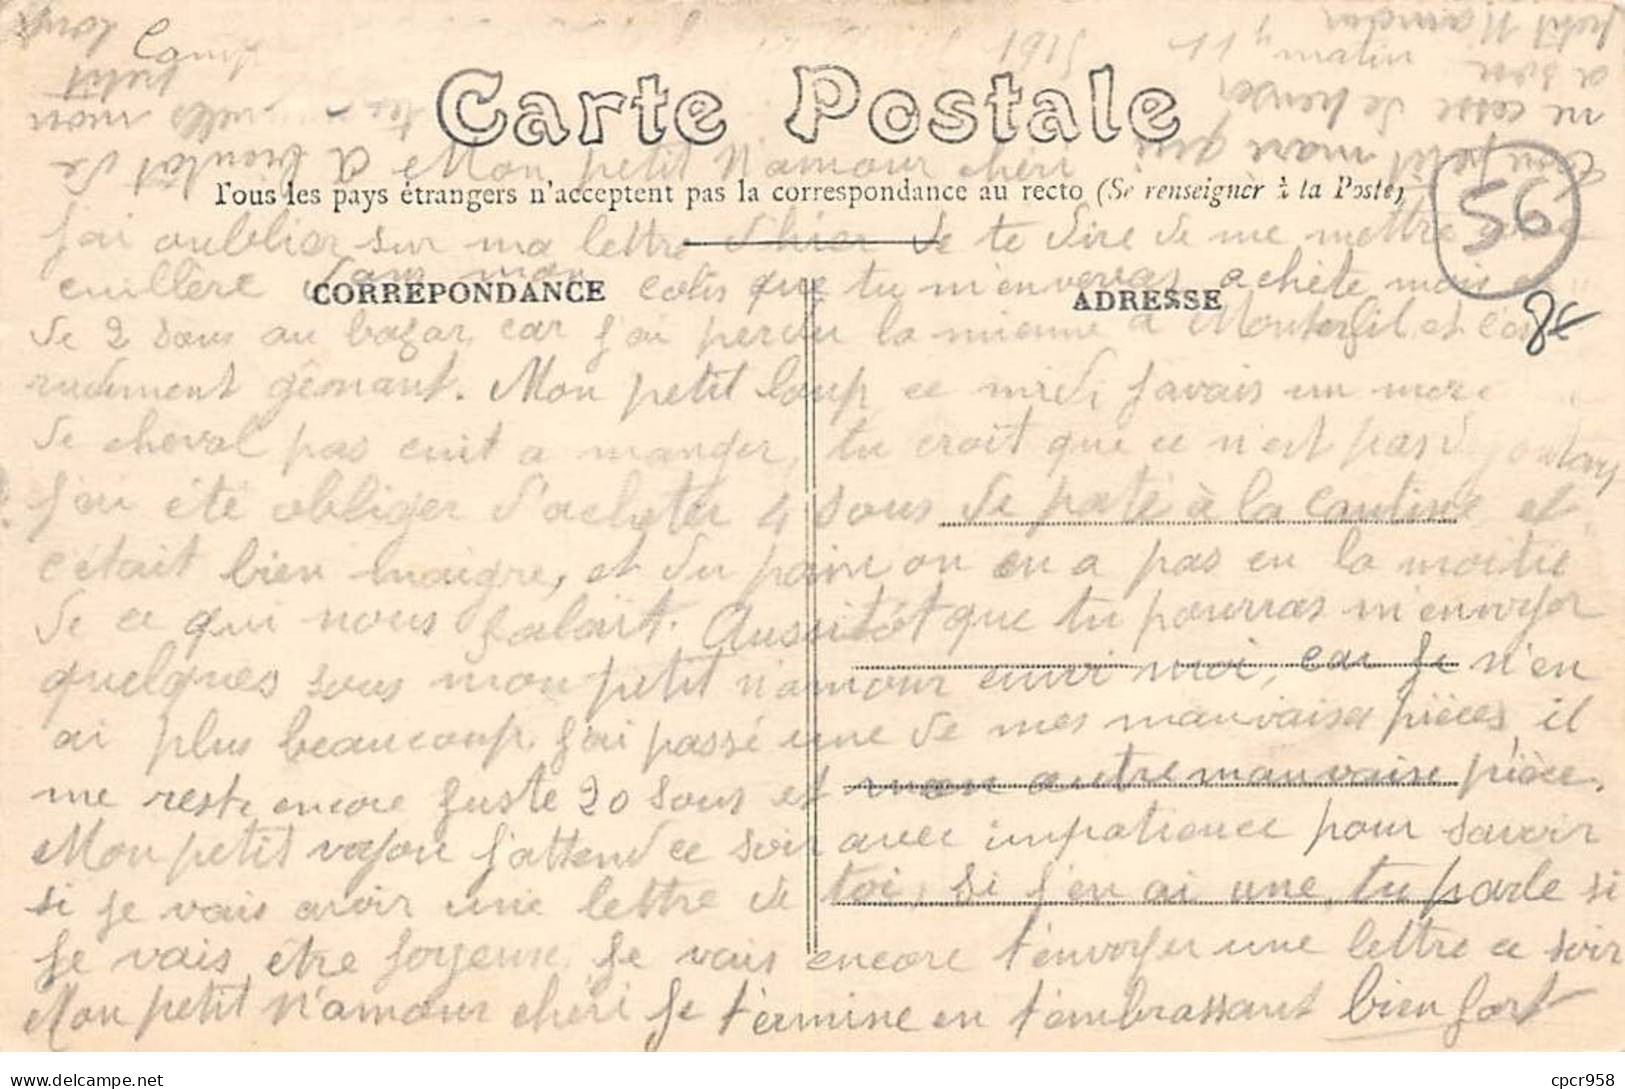 Camp
1916
Carte Postale
Mon petit n'amour chéri
Tous les pays étrangers n'acceptent pas la correspondance au recto (Se renseigner à la Poste)
56
J'ai oublier sur ma lettre d'hier de te dire de me mettre
cuillère dans mon colis que tu m'enverras achète mois
CORREPONDANCE
ADRESSE
8€
de 2 sous au bazar car j'ai perdu la mienne a Monterfil et c'est
rudement gênant. Mon petit loup ce midi j'avais un more
de cheval pas cuit a manger, tu croit que ce n'est pas
j'ai été obliger d'acheter 4 sous de paté à la cantine et
c'était bien maigre, et du pain on en a pas eu la moitié
de ce qui nous falait. Aussitôt que tu pourras m'envoyer
quelques sous mon petit n'amour envoi moi, car je n'en
ai plus beaucoup. J'ai passé une de mes mauvaises pièces, il
me reste encore juste 20 sous et mon autre mauvaise pièce.
Mon petit voyou j'attend ce soir avec impatience pour savoir
si je vais avoir une lettre de toi, si j'en ai une, tu parle si
je vais être joyeuse. Je vais encore t'envoyer une lettre ce soir
Mon petit n'amour chéri je termine en t'embrassant bien fort
A bientôt de
mon petit
Ton petit mari qui
ne cesse de penser
a son
petit Namour
cpcr958